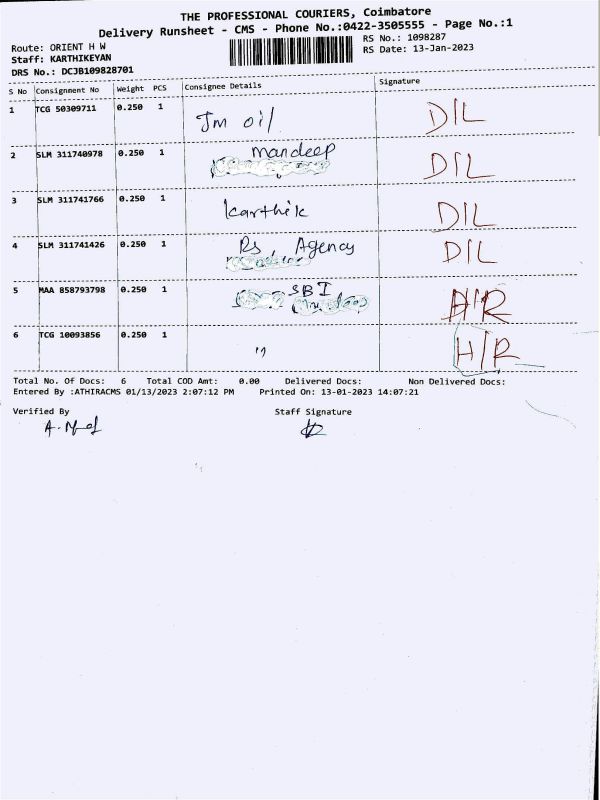 THE PROFESSIONAL COURIERS, Coimbatore
Delivery Runsheet - CMS - Phone No.:0422-3505555 - Page No.:1
Route: ORIENT H W
RS No.: 1098287
Staff: KARTHIKEYAN
RS Date: 13-Jan-2023
DRS No.: DCJB109828701
S No Consignment No Weight PCS Consignee Details Signature
1 TCG 50309711 0.250 1 Jm oil D/L
2 SLM 311740978 0.250 1 mandeep D/L
3 SLM 311741766 0.250 1 karthik D/L
4 SLM 311741426 0.250 1 Rs Agency D/L
5 MAA 858793798 0.250 1 SBI H/R
6 TCG 10093856 0.250 1 " H/R
Total No. Of Docs: 6 Total COD Amt: 0.00 Delivered Docs: Non Delivered Docs:
Entered By :ATHIRACMS 01/13/2023 2:07:12 PM Printed On: 13-01-2023 14:07:21
Verified By Staff Signature